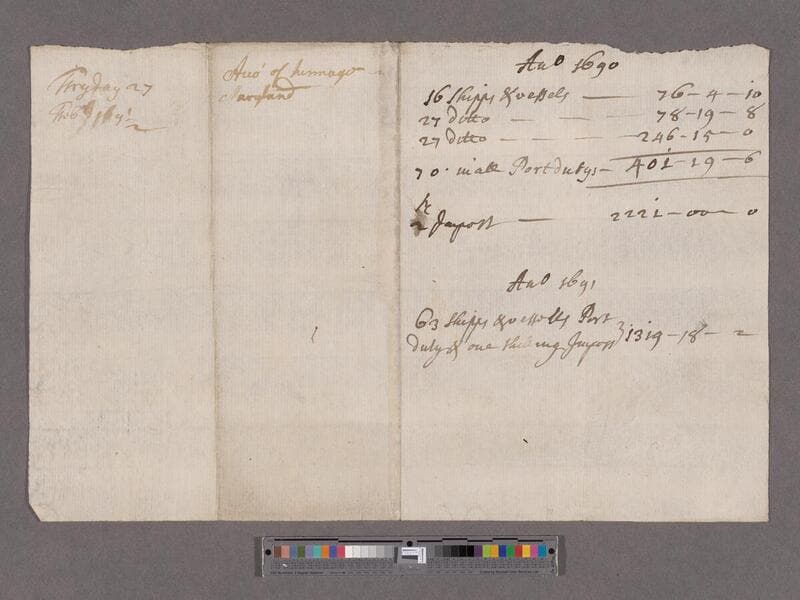 Fryday 27
Acco of tunnage
Maryland
Ano 1690
16 Shipps & vessels — 76-4-10
27 ditto — — — 78-19-8
27 ditto — — — 246-15-0
70 in all Port dutys — 401-19-6
Impost — 2221-00-0
Ano 1691
63 Shipps & vessells Port
duty & one shilling Impost } 1319-18-2